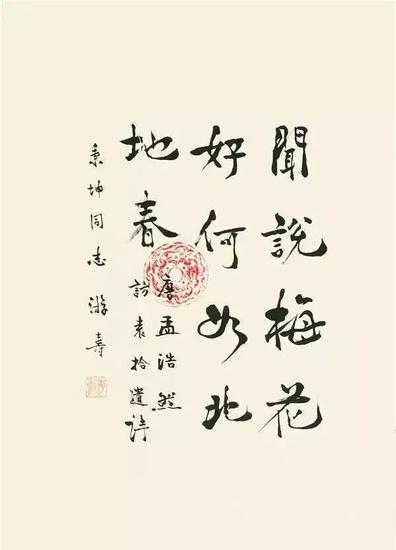 聞說梅花
好何如北
地春
唐孟浩然
訪袁拾遺詩
坤同志 游壽